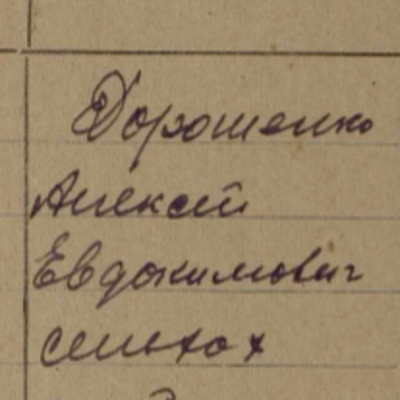 Дорошенко
Алексей
Евдокимович
сельхоз